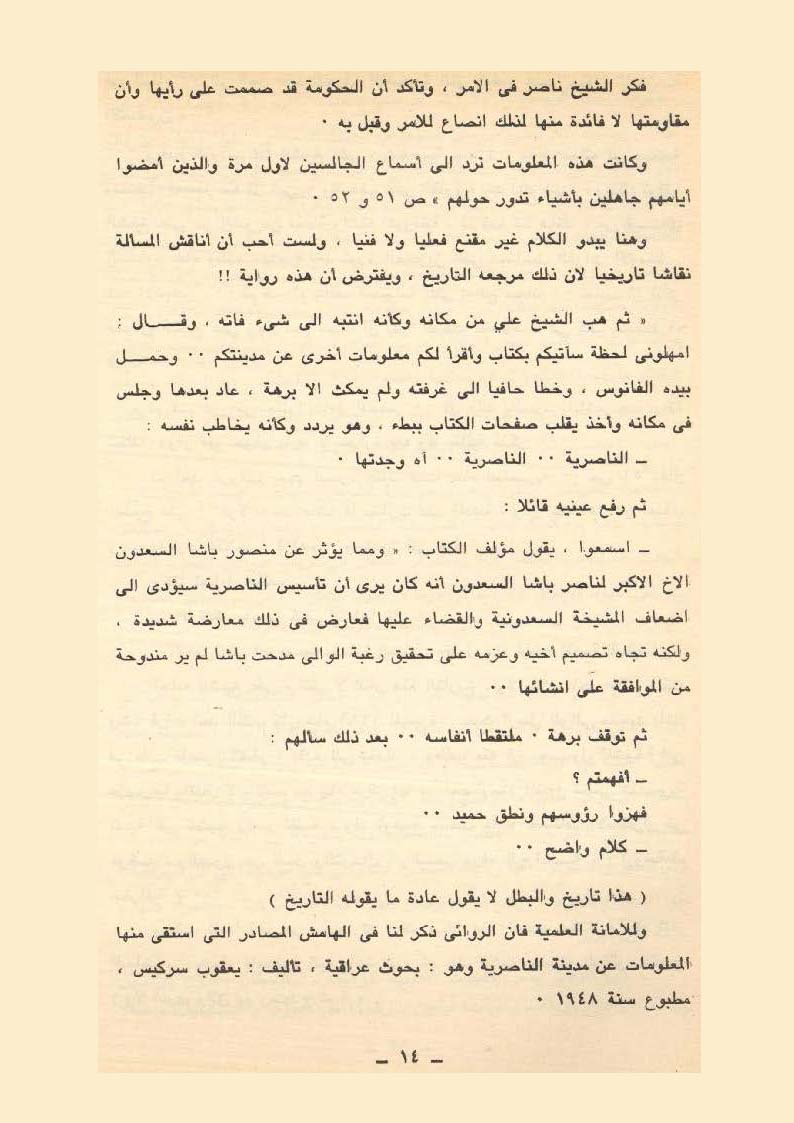 فكر الشيخ ناصر فى الامر ، وتأكد أن الحكومة قد صممت على رأيها وأن
مقاومتها لا فائدة منها لذلك انصاع للامر وقبل به ٠
وكانت هذه المعلومات ترد الى أسماع الجالسين لاول مرة والذين أمضوا
أيامهم جاهلين بأشياء تدور حولهم » ص ٥١ و ٥٢ ٠
وهنا يبدو الكلام غير مقنع فعليا ولا فنيا ، ولست أحب أن أناقش المسألة
نقاشا تاريخيا لان ذلك مرجعه التاريخ ، ويفترض أن هذه رواية !!
« ثم هب الشيخ علي من مكانه وكأنه انتبه الى شىء فاته ، وقـــــال :
امهلونى لحظة سآتيكم بكتاب وأقرأ لكم معلومات أخرى عن مدينتكم ٠٠ وحمـــل
بيده الفانوس ، وخطا حافيا الى غرفته ولم يمكث الا برهة ، عاد بعدها وجلس
فى مكانه وأخذ يقلب صفحات الكتاب ببطء ، وهو يردد وكأنه يخاطب نفسه :
ـ الناصرية ٠٠ الناصرية ٠٠ آه وجدتها ٠
ثم رفع عينيه قائلا :
ـ اسمعوا ، يقول مؤلف الكتاب : « ومما يؤثر عن منصور باشا السعدون
الاخ الاكبر لناصر باشا السعدون أنه كان يرى أن تأسيس الناصرية سيؤدى الى
اضعاف المشيخة السعدونية والقضاء عليها فعارض فى ذلك معارضة شديدة ،
ولكنه تجاه تصميم أخيه وعزمه على تحقيق رغبة الوالى مدحت باشا لم ير مندوحة
من الموافقة على انشائها ٠٠
ثم توقف برهة ٠ ملتقطا أنفاسه ٠٠ بعد ذلك سألهم :
ـ أفهمتم ؟
فهزوا رؤوسهم ونطق حميد ٠٠
ـ كلام واضح ٠٠
( هذا تاريخ والبطل لا يقول عادة ما يقوله التاريخ )
وللامانة العلمية فان الروائى ذكر لنا فى الهامش المصادر التى استقى منها
المعلومات عن مدينة الناصرية وهو : بحوث عراقية ، تأليف : يعقوب سركيس ،
مطبوع سنة ١٩٤٨ ٠
ـ ١٤ ـ